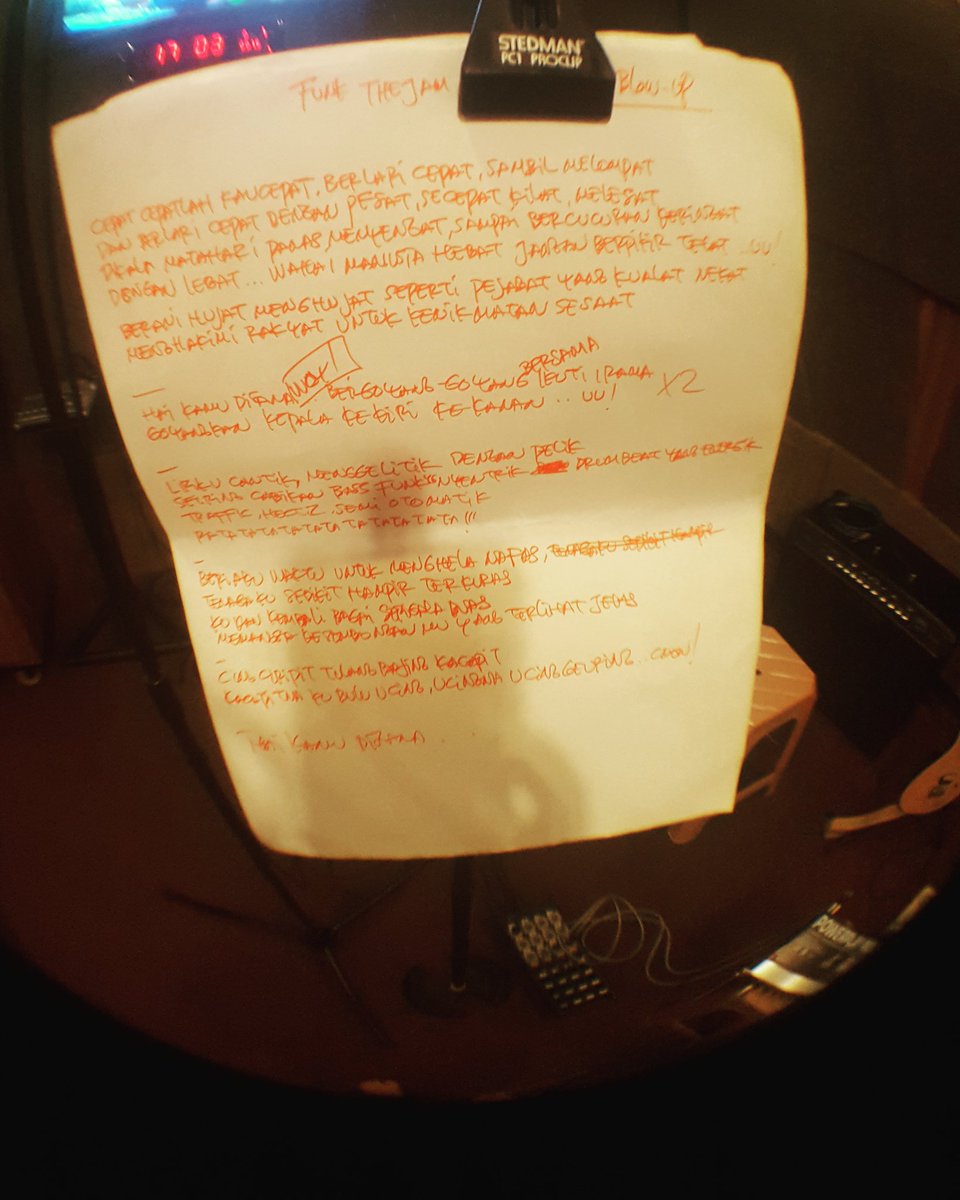 17 03
STEDMAN
PC1 PROCLIP
FUNK THE JAM
BLOW-UP
CEPAT CEPATLAH KAU CEPAT, BERLARI CEPAT, SAMBIL MELOMPAT
DAN BERLARI CEPAT DENGAN PESAT, SECEPAT KILAT, MELESAT
DIKALA MATAHARI PANAS MENYENGAT, SAMPAI BERCUCURAN KERINGAT
DENGAN LEBAT... WAHAI MANUSIA HEBAT JANGAN BERPIKIR TELAT ..UU!
BERANI HUJAT MENGHUJAT SEPERTI PEJABAT YANG KUALAT NEKAT
MENGHAKIMI RAKYAT UNTUK KENIKMATAN SESAAT
HAI KAMU DISANA BERGOYANG-GOYANG BERSAMA IKUTI IRAMA X2
GOYANGKAN KEPALA KE KIRI KE KANAN .. UU!
LIRIKU CANTIK, MENGGELITIK DENGAN PELIK
SEIRING CABIKAN BASS FUNK NYENTRIK DRUMBEAT YANG ENERJIK
TRAFFIC, HECTIC, SEMI OTOMATIK
RATATATATATATATATATATATA!!!
BERI AKU WAKTU UNTUK MENGHELA NAFAS,
TENAGAKU SEDIKIT HAMPIR TERKURAS
KU DAN KEMBALI BAGAI SERIGALA BUAS
MENANGSA GEROMBOLANMU YANG TERLIHAT JELAS
CING CIRIPIT TULANG BAJING KACAPIT
KACAPITNA KU BULU UCING, UCINGNA UCING GEURING...
HAI KAMU DISANA ...